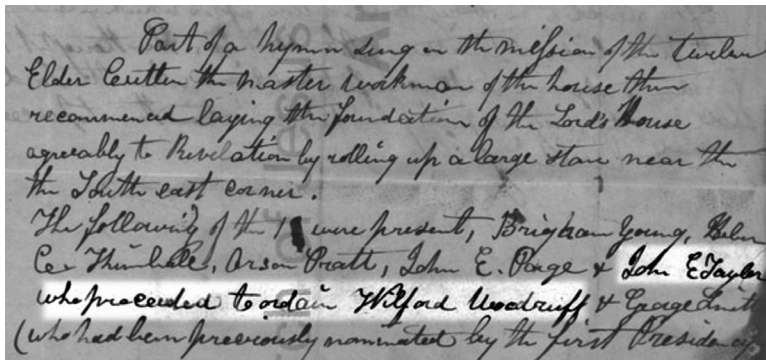 Part of a hymn sung on the mission of the twelve
Elder Cutler the master workman of the house then
recommenced laying the foundation of the Lord's House
agreeably to Revelation by rolling up a large stone near the
the South east corner.
The following of the 1 were present, Brigham Young, Heber
C. Kimball, Orson Pratt, John E. Page & John E Taylor
who proceeded to ordain Wilford Woodruff & George Smith
(who had been previously nominated by the first Presidency